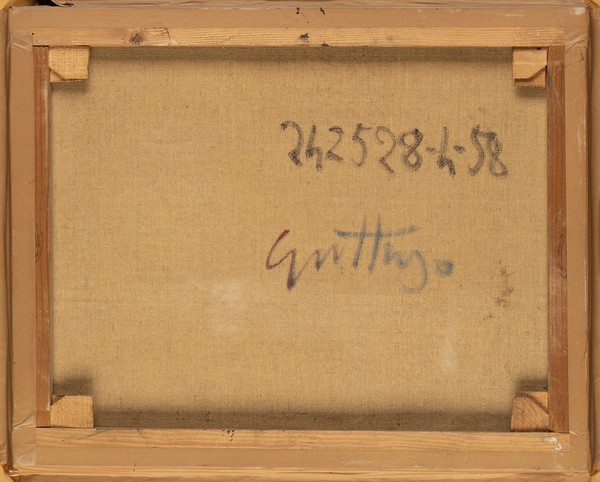 242528-4-58
Guttuso